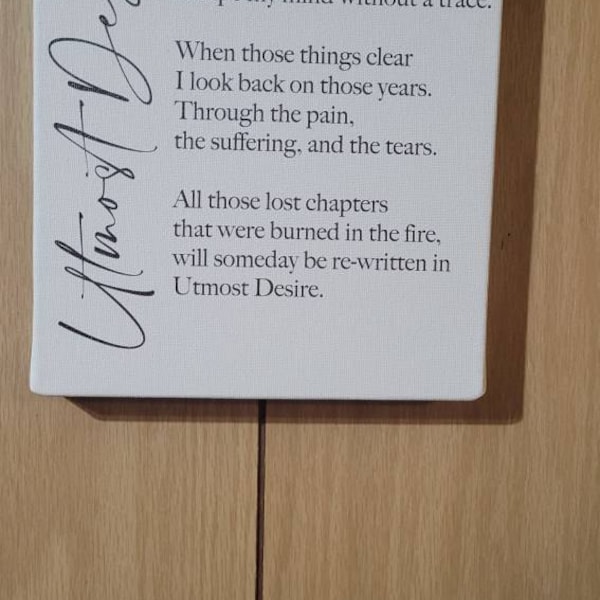 mind without a trace.
When those things clear
I look back on those years.
Through the pain,
the suffering, and the tears.
All those lost chapters
that were burned in the fire,
will someday be re-written in
Utmost Desire.
Utmost